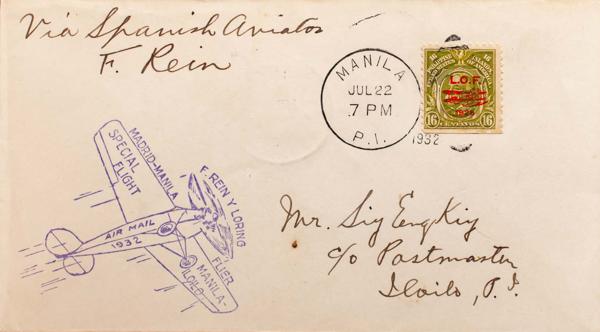 Via Spanish Aviator
F. Rein
MANILA
JUL 22
7 PM
P.I.
1932
L.O.F.
16 CENTAVOS 16
MADRID-MANILA
SPECIAL
FLIGHT
F. REIN Y LORING
AIR MAIL
1932
FLIER
MANILA-
ILOILO
Mr. Siy Eng Kiy
c/o Postmaster
Iloilo, P.I.